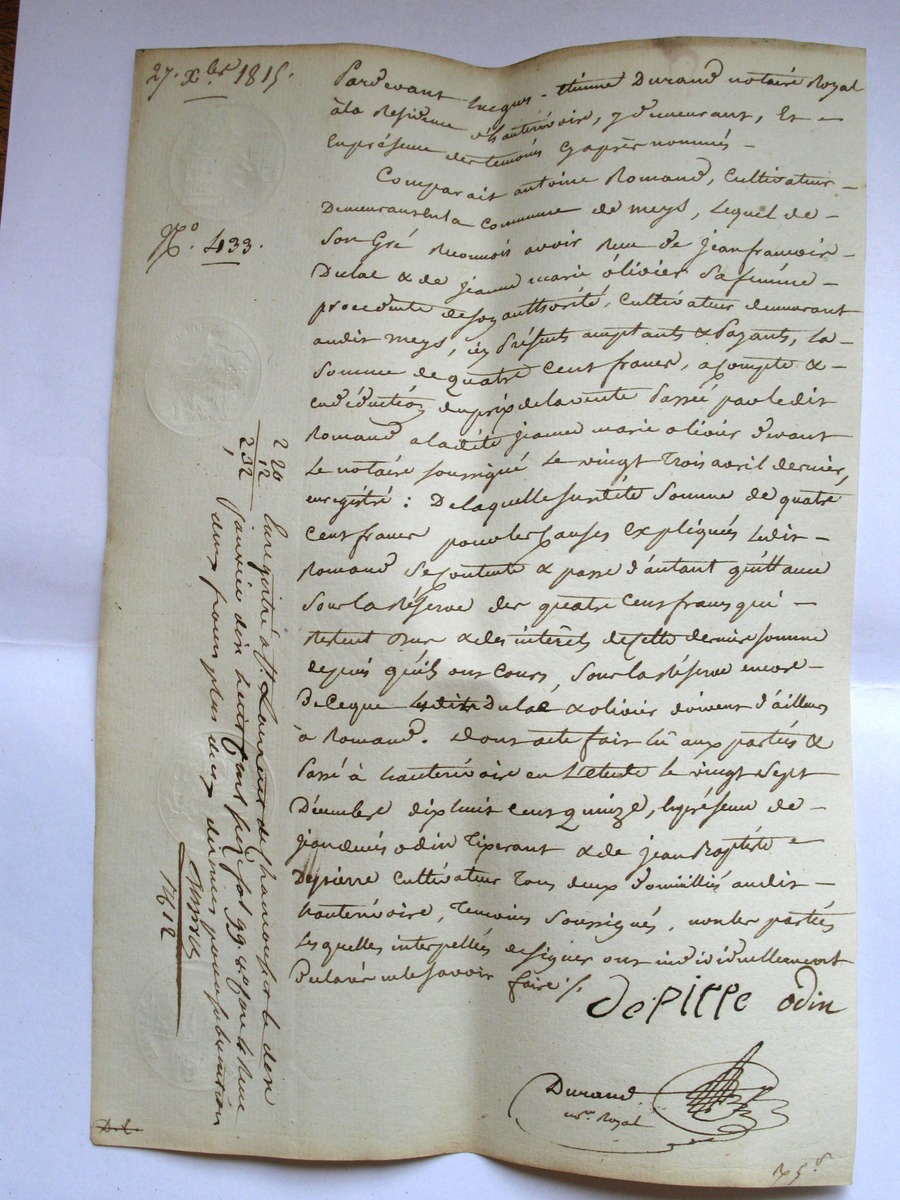 27. Xbre 1815.
No. 433.
Pardevant Jacques-étienne Durand notaire Royal
à la Residence d'hauterivoire, y demeurant, Et
En présence des temoins cy après nommés
Comparait antoine Romand, Cultivateur
Demeurant en la Commune de meys, Lequel de
Son Gré Reconnois avoir Reçu de jean françois
Dulac & de jeanne marie olivier Sa femme
procedente de son authorité, Cultivateur demeurant
audit meys, icy Présents acceptants & Payants, La
Somme de quatre Cent francs, acompte &
en déduction du prix de la vente Passée par le dit
Romand a la dite jeanne marie olivier devant
Le notaire soussigné Le vingt Trois avril dernier,
enregistré : De laquelle susdite Somme de quatre
Cent francs pour les causes Expliquées Ledit
Romand Se Contente & passe d'autant quittance
Sous la Réserve des quatre Cent francs qui
Restent Dus & des intérêts de cette derniere somme
depuis qu'ils ont Cours, Sous la Réserve encore
De Ceque Dulac & olivier doivent d'ailleurs
à Romand. Dont acte fait Lû aux parties &
Passé à hauterivoire en L'etude Le vingt Sept
Décembre dix huit Cent quinze, En présence de
jean denis odin Tixerant & de jean Baptiste
Depierre Cultivateur Tous deux domiciliés audit
hauterivoire, Temoins Soussignés, non les parties
Lesquelles interpellées de signer ont individuellement
Déclaré ne le savoir faire ./.
dePierre odin
Durand
Not.re Royal
2 20
12
2, 32
Enregistré à St. Laurent de chamousset le dix
janvier dix huit cent seize fol. 99. Reçu
deux francs plus vingt deux centimes pour subvention